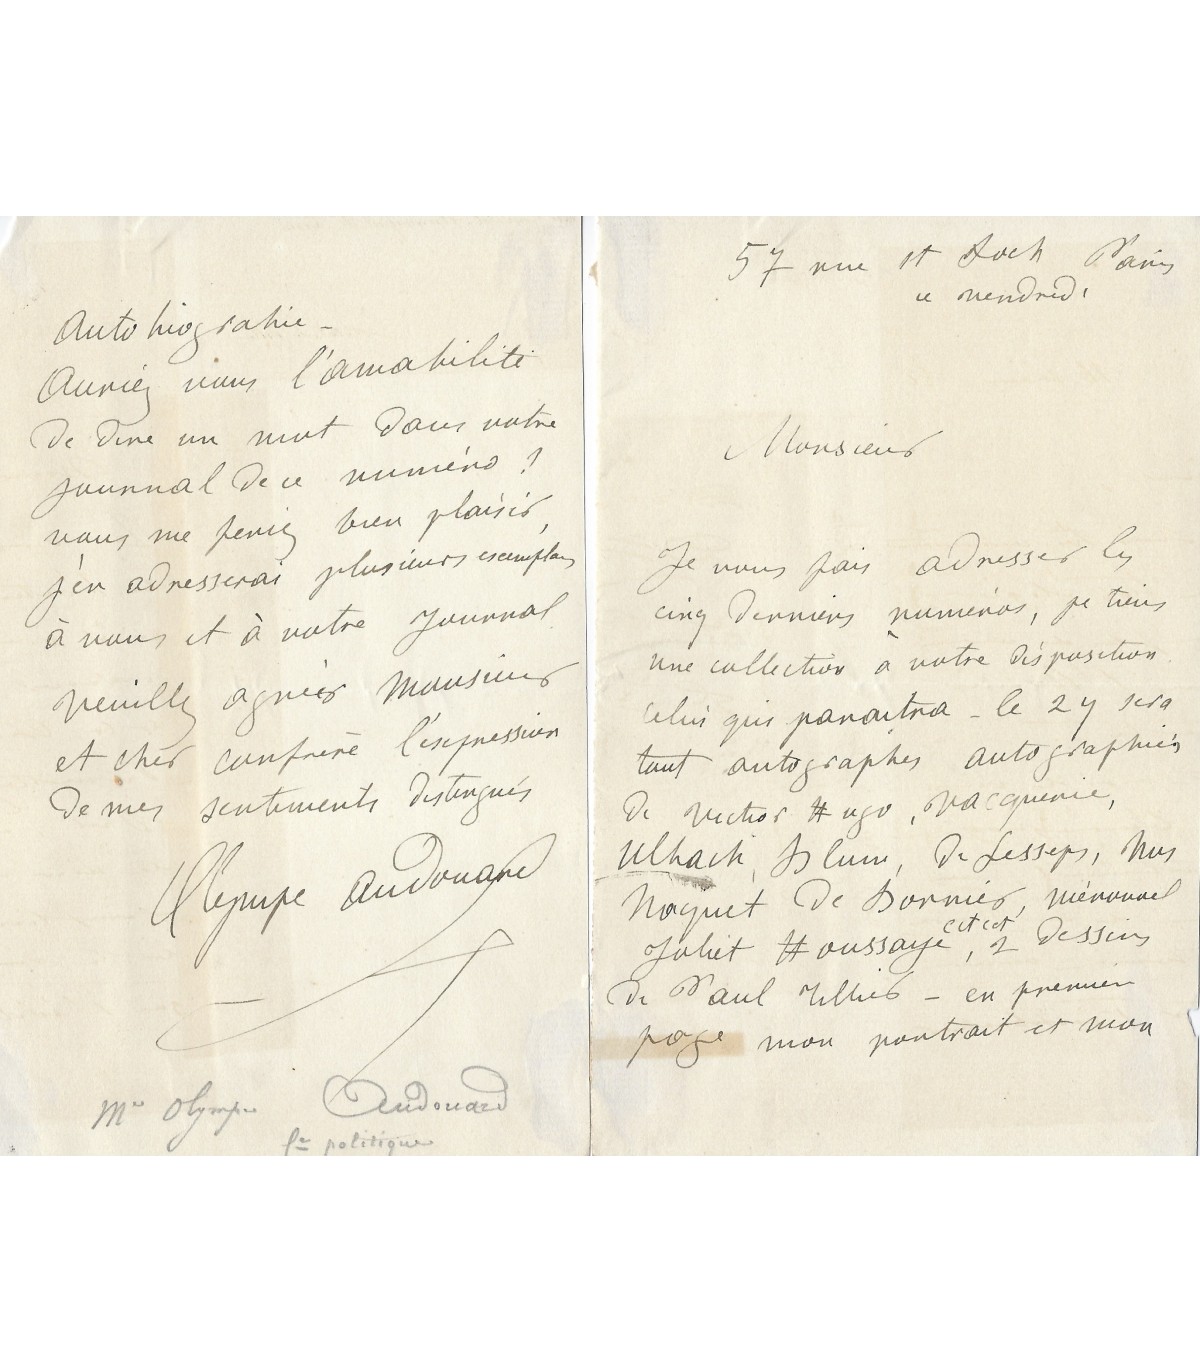 57 rue st Roch Paris
ce vendredi
Monsieur
Je vous fais adresser les
cinq derniers numéros, je tiens
une collection à votre disposition.
celui qui paraitra - le 27 sera
tout autographes autographiés
de Victor Hugo, Vacquerie,
Ulbach, Blum, de Lesseps, Mrs
Naquet de Bornier,
Houssaye cet cet, 2 dessins
de Paul - en premièr
page mon portrait et mon
Autobiograhie -
Auriez vous l'amabilité
de dire un mot dans votre
journal de ce numéro ?
vous me feriez bien plaisir,
j'en adresserai plusieurs exemplaires
à vous et à votre journal
veuillez agréer Monsieur
et cher confrère l'expression
de mes sentiments distingués
Olympe Audouard
Me Olympe Audouard
fe politique